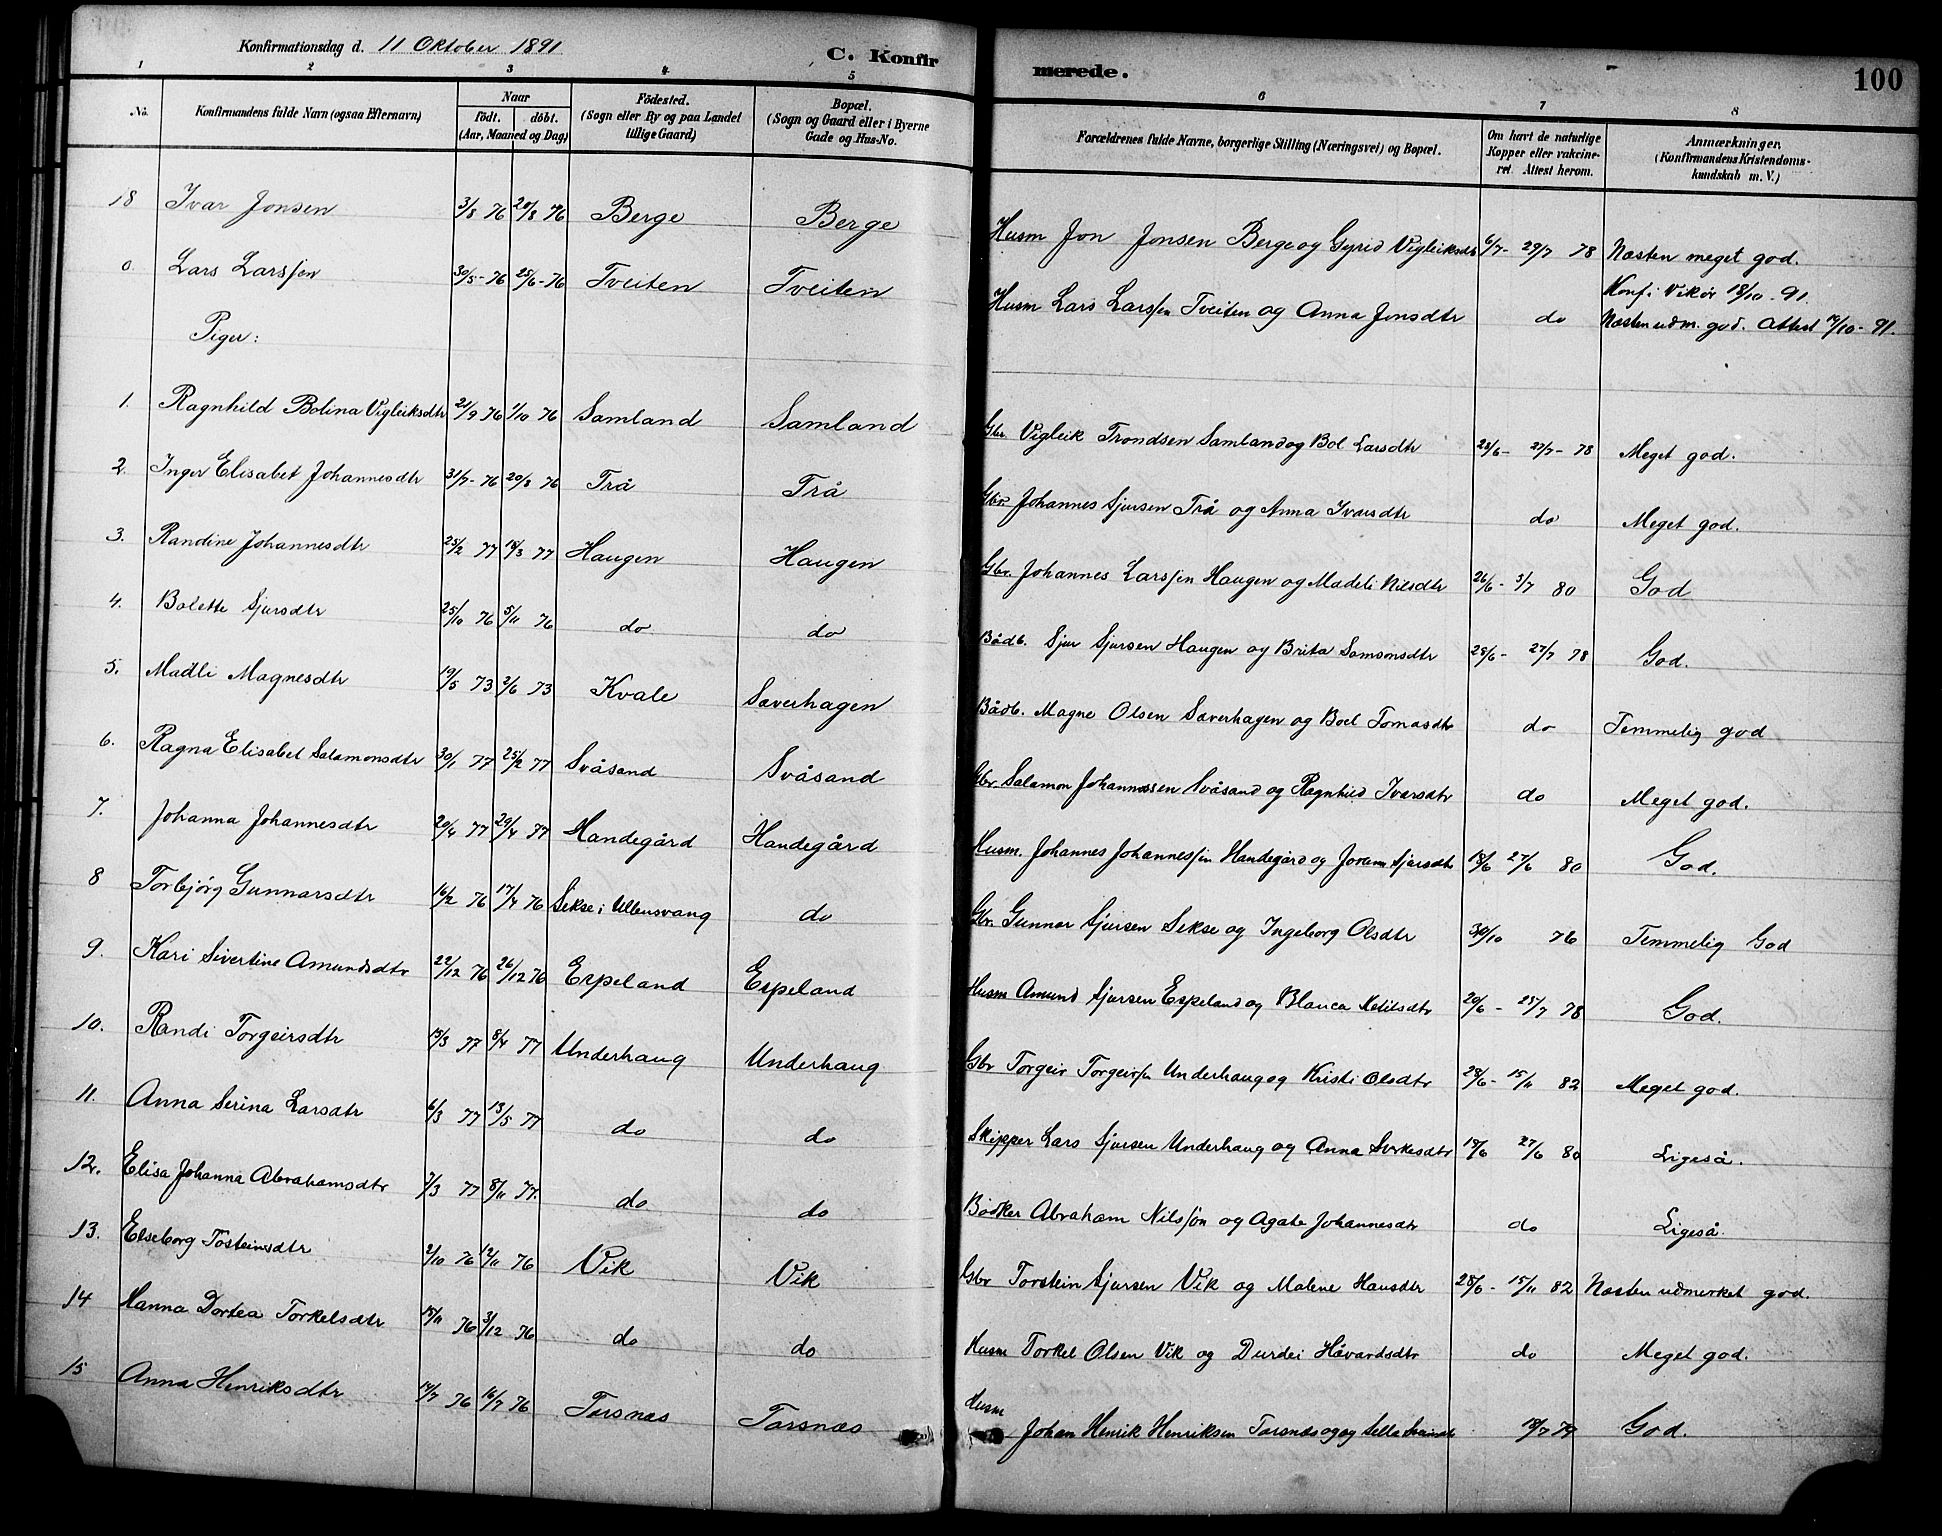 Konfirmationsdag d. 11 Oktober 1891 C. Konfirmerede. 100
1 2 3 4 5 6 7 8
No. Konfirmandens fulde Navn (ogsaa Efternavn) Naar födt. döbt. (Aar, Maaned og Dag) Födested. (Sogn eller By og paa Landet tillige Gaard) Bopæl. (Sogn og Gaard eller i Byerne Gade og Hus-No. Forældrenes fulde Navne, borgerlige Stilling (Næringsvei) og Bopæl. Om havt de naturlige Kopper eller vakcineret. Attest herom. Anmærkninger. (Konfirmandens Kristendomskundskab m. V.)
18 Ivar Jonsen 3/8 76 20/8 76 Berge Berge Husm Jon Jonsen Berge og Gyrid Vigleiksdtr 6/7 - 29/7 78 Næsten meget god.
0. Lars Larssen 30/5-76 25/6-76 Tveiten Tveiten Husm Lars Larssen Tveiten og Anna Jonsdtr do Konf i Vikør 18/10-91. Næsten udm. god. Attest /10-91.
Piger:
1. Ragnhild Bolina Vigleiksdtr 21/9 76 1/10 76 Samland Samland Gbr. Vigleik Trondsen Samland og Bol Larsdtr 28/6 - 27/7 - 78 Meget god.
2. Inger Elisabet Johannesdtr 31/7-76 20/8 76 Trå Trå Gbr. Johannes Sjursen Trå og Anna Ivarsdtr do Meget god.
3. Randine Johannesdtr 25/2 77 18/3 77 Haugen Haugen Gbr. Johannes Larssen Haugen og Madeli Nilsdtr 26/6 - 3/7 80 God
4. Bolette Sjursdtr 25/10 76 5/11 76 do do Bådb. Sjur Sjursen Haugen og Brita Samsonsdtr 28/6 - 27/7 78 God.
5. Madli Magnesdtr 19/5 73 2/6 73 Kvale Saverhagen Bådb. Magne Olsen Saverhagen og Boel Tomasdtr do Temmelig god
6. Ragna Elisabet Salamonsdtr 30/1 77 25/2 77 Svåsand Svåsand Gbr. Salamon Johannessen Svåsand og Ragnhild Ivarsdtr do Meget god.
7. Johanna Johannesdtr 20/4 77 29/4 77 Handegård Handegård Husm. Johannes Johannessen Handegård og Sjursdtr 18/6 27/6 80 God.
8 Torbjörg Gunnarsdtr 16/2 76 17/4 76 Sekse i Ullensvang do Gbr. Gunnar Sjursen Sekse og Ingeborg Olsdtr 30/10 76 Temmelig God
9. Kari Sivertine Amundsdtr 22/12 76 26/12 76 Espeland Espeland Husm Amund Sjursen Espeland og Blanca Ketilsdtr 20/6 - 25/7 78 God.
10. Randi Torgeirsdtr 15/3 77 8/4 77 Underhaug Underhaug Gbr Torgeir Torgeirsn Underhaug og Kristi Olsdtr 28/6 - 15/11 82 Meget god.
11. Anna Serina Larsdtr 6/3 77 13/5 77 do do Skipper Lars Sjursen Underhaug og Anna Svrkesdtr 18/6 27/6 80 Ligeså.
12. Elisa Johanna Abrahamsdtr 7/3 77 8/11 77. do do Bødker Abraham Nilssön og Agata Johannesdtr do Ligeså.
13. Elseborg Tosteinsdtr 2/10 76 12/11 76 Vik Vik Gbr Torstein Sjursen Vik og Malene Hansdtr 28/6 - 15/11 82 Næsten udmerket god.
14 Hanna Dortea Torkelsdtr 15/11 76 3/12 76 do do Husm Torkel Olsen Vik og Durdei Håvardsdtr do Meget god.
15 Anna Henriksdtr 14/7 76 16/7 76 Torsnæs Torsnæs Husm Johan Henrik Henriksen Torsnæs og Sella 18/7 79 God.